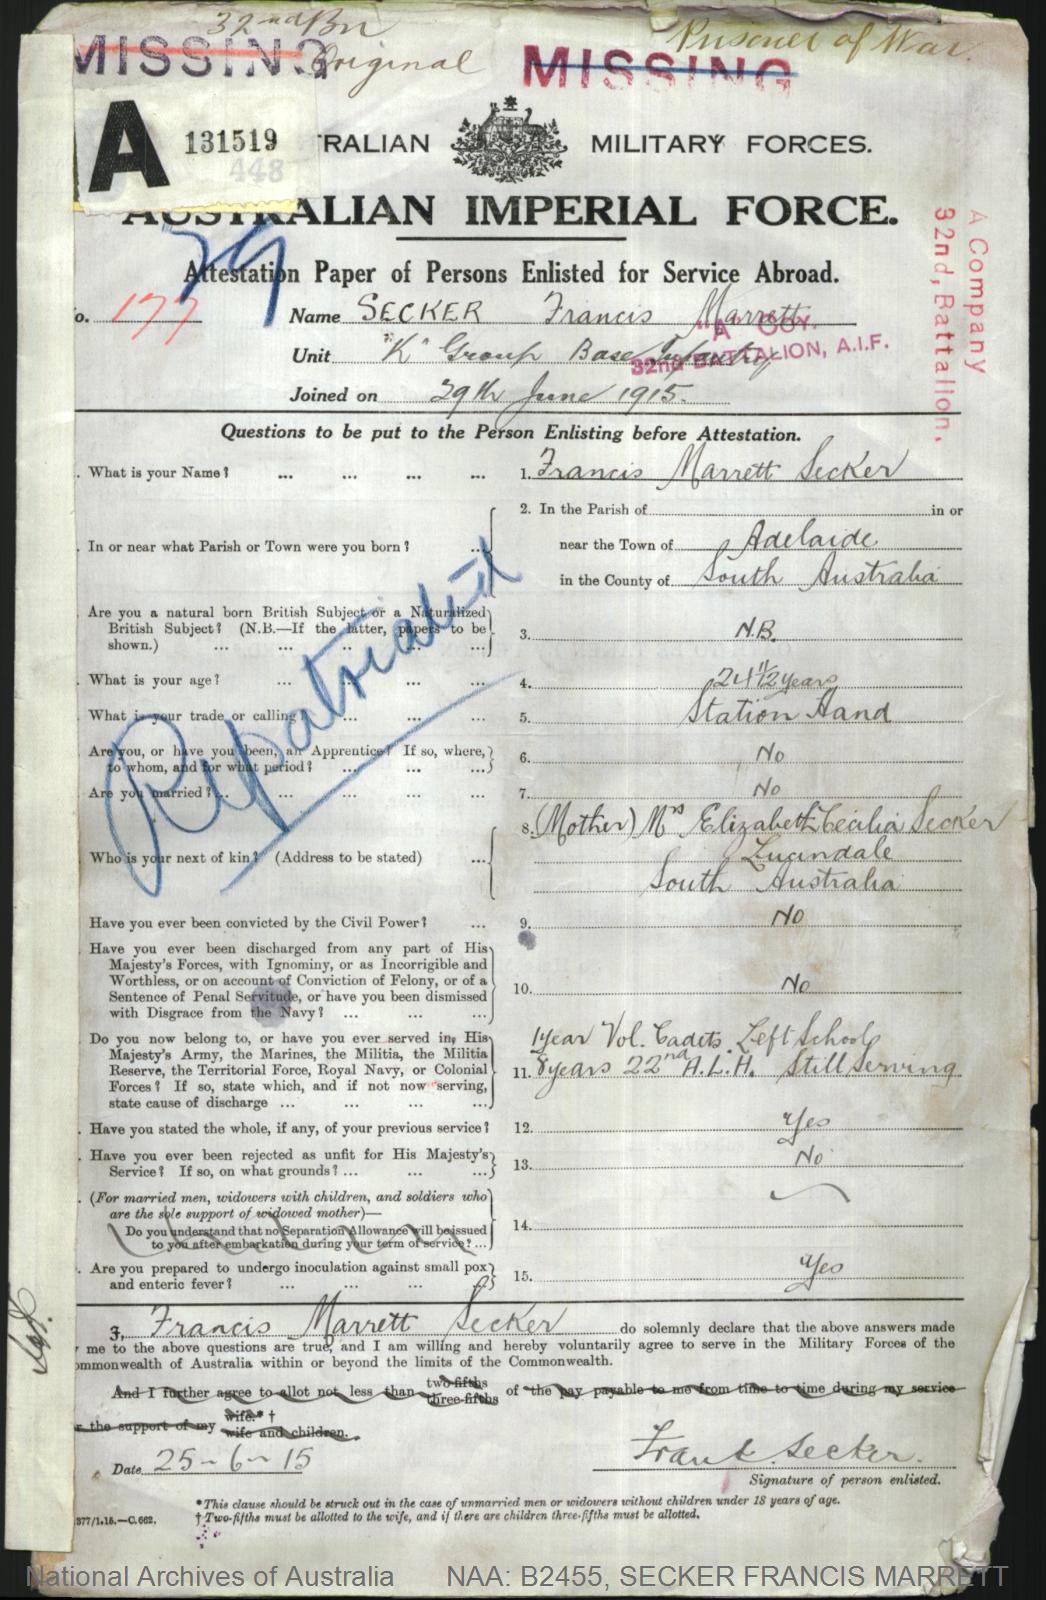 32nd Bn
MISSING Original MISSING Prisoner of War.
A 131519
448
TRALIAN MILITARY FORCES.
AUSTRALIAN IMPERIAL FORCE.
A Company
32nd, Battalion.
Attestation Paper of Persons Enlisted for Service Abroad.
o. 177 Name SECKER Francis Marrett
"A" COY.
32nd BATTALION, A.I.F.
Unit "K" Group Base Infantry
Joined on 29th June 1915.
Questions to be put to the Person Enlisting before Attestation.
. What is your Name? ... ... ... ... 1. Francis Marrett Secker
2. In the Parish of in or
. In or near what Parish or Town were you born? ... near the Town of Adelaide
in the County of South Australia
Repatriated
. Are you a natural born British Subject or a Naturalized
British Subject? (N.B.—If the latter, papers to be 3. N.B.
shown.) ... ... ... ... ...
. What is your age? ... ... ... ... 4. 24 11/12 years
. What is your trade or calling? ... ... ... 5. Station Hand
. Are you, or have you been, an Apprentice? If so, where,
to whom, and for what period? ... ... ... 6. No
. Are you married? ... ... ... ... ... 7. No
8. (Mother) Mrs Elizabeth Cecilia Secker
. Who is your next of kin? (Address to be stated) ... Lucindale
South Australia
. Have you ever been convicted by the Civil Power? ... 9. No
. Have you ever been discharged from any part of His
Majesty's Forces, with Ignominy, or as Incorrigible and
Worthless, or on account of Conviction of Felony, or of a
Sentence of Penal Servitude, or have you been dismissed 10. No
with Disgrace from the Navy? ... ... ...
. Do you now belong to, or have you ever served in, His 1 year Vol. Cadets. Left School
Majesty's Army, the Marines, the Militia, the Militia
Reserve, the Territorial Force, Royal Navy, or Colonial 11. 8 years 22nd A.L.H. Still Serving
Forces? If so, state which, and if not now serving,
state cause of discharge ... ... ... ...
. Have you stated the whole, if any, of your previous service? 12. Yes
. Have you ever been rejected as unfit for His Majesty's
Service? If so, on what grounds? ... ... ... 13. No
. (For married men, widowers with children, and soldiers who
are the sole support of widowed mother)—
Do you understand that no Separation Allowance will be issued 14.
to you after embarkation during your term of service? ...
. Are you prepared to undergo inoculation against small pox
and enteric fever? ... ... ... 15. Yes
I, Francis Marrett Secker do solemnly declare that the above answers made
me to the above questions are true, and I am willing and hereby voluntarily agree to serve in the Military Forces of the
ommonwealth of Australia within or beyond the limits of the Commonwealth.
And I further agree to allot not less than two-fifths three-fifths of the pay payable to me from time to time during my service
r the support of my wife.* † wife and children.
Date 25-6-15 Frank Secker.
Signature of person enlisted.
* This clause should be struck out in the case of unmarried men or widowers without children under 18 years of age.
377/1.15.—C.662. † Two-fifths must be allotted to the wife, and if there are children three-fifths must be allotted.
National Archives of Australia NAA: B2455, SECKER FRANCIS MARRETT